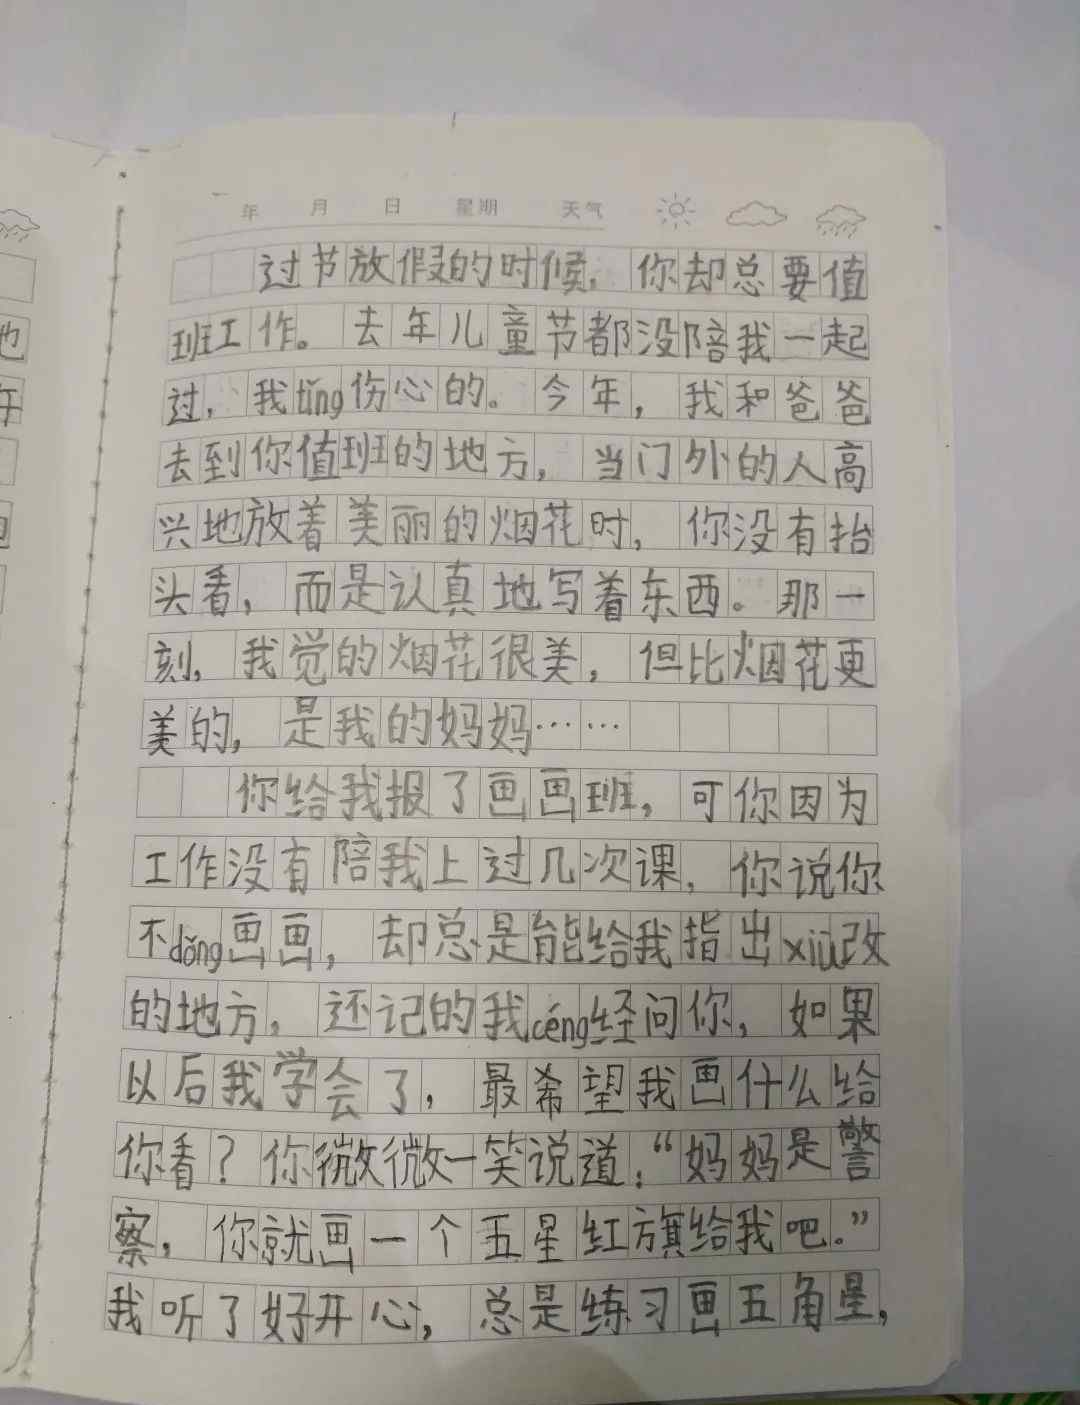 年 月 日 星期 天气
过节放假的时候，你却总要值
班工作。去年儿童节都没陪我一起
过，我tǐng伤心的。今年，我和爸爸
去到你值班的地方，当门外的人高
兴地放着美丽的烟花时，你没有抬
头看，而是认真地写着东西。那一
刻，我觉的烟花很美，但比烟花更
美的，是我的妈妈……
你给我报了画画班，可你因为
工作没有陪我上过几次课，你说你
不dǒng画画，却总是能给我指出xiū改
的地方，还记的我céng经问你，如果
以后我学会了，最希望我画什么给
你看？你微微一笑说道：“妈妈是警
察，你就画一个五星红旗给我吧。”
我听了好开心，总是练习画五角星，